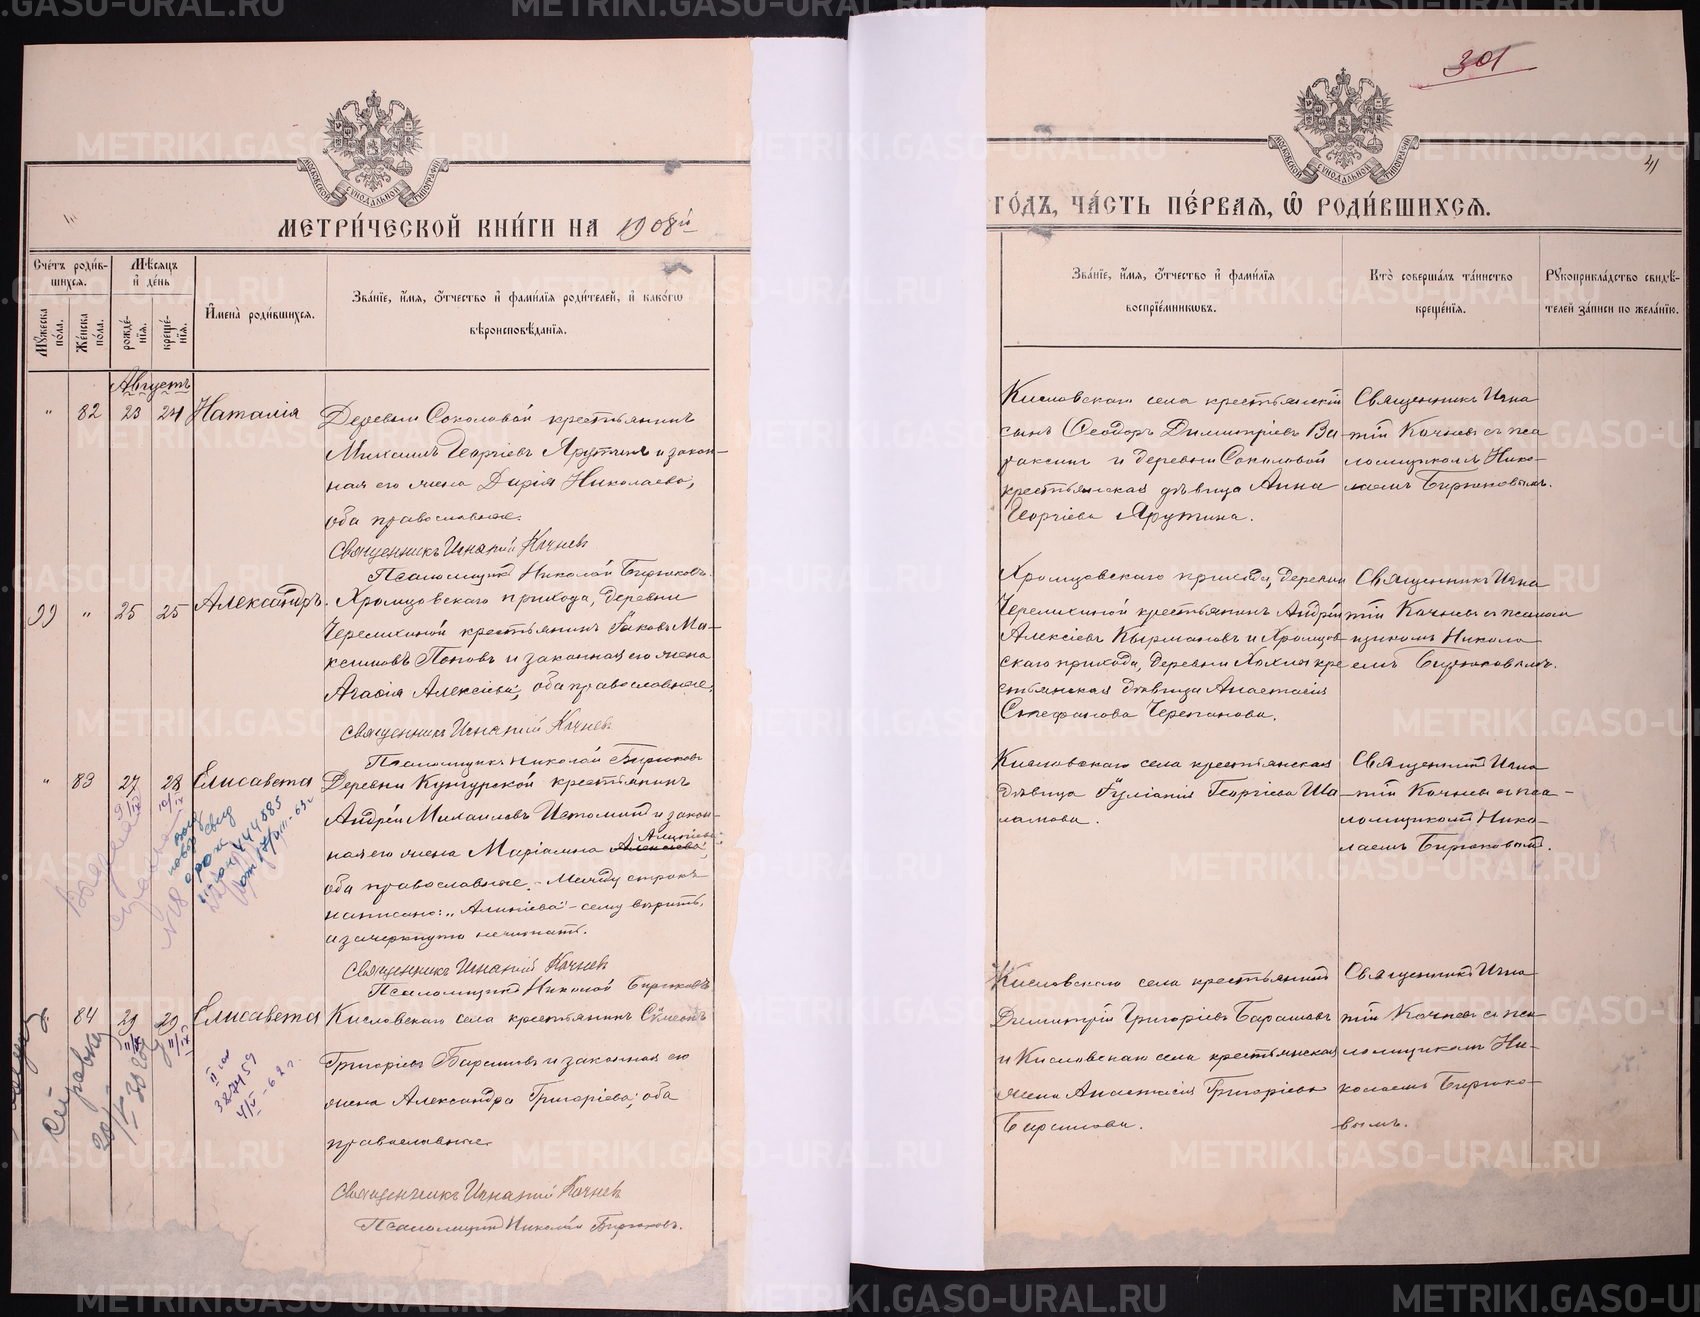 301
41
МОСКОВСКОЙ СѴНОДАЛЬНОЙ ТИПОГРАФІИ
МОСКОВСКОЙ СѴНОДАЛЬНОЙ ТИПОГРАФІИ
МЕТРИ́ЧЕСКОЙ КНИ́ГИ НА 1908й
ГО́ДЪ, ЧА́СТЬ ПЕ́РВАЯ, Ѡ РОДИ́ВШИХСЯ.
Сче́тъ роди́в-
шихся.
Мꙋжеска по́ла.
Же́нска по́ла.
Мѣ́сяцъ и де́нь
рожде́-
нїя.
креще́-
нїя.
Имена̀ роди́вшихся.
Зва́нїе, имя, о́тчество и фами́лїя роди́телей, и како́гѡ
вѣроисповѣ́данїя.
Зва́нїе, имя, о́тчество и фами́лїя
воспрїе́мникѡвъ.
Кто̀ соверша́лъ та́инство
креще́нїя.
Рꙋкоприкла́дство свидѣ́-
телей за́писи по жела́нїю.
Августъ
" 82 23 24 Наталія
Деревни Соколовой крестьянинъ
Михаилъ Георгіевъ Ярутинъ и закон-
ная его жена Дарія Николаева,
оба православные.
Священникъ Игнатій Кочневъ
Псаломщикъ Николай Бирюковъ.
Кисловскаго села крестьянскій
сынъ Ѳеодоръ Димитріевъ Ва-
раксинъ и деревни Соколовой
крестьянская дѣвица Анна
Георгіева Ярутина.
Священникъ Игна-
тій Кочневъ съ пса-
ломщикомъ Нико-
лаемъ Бирюковымъ.
99 " 25 25 Александръ.
Хромцовскаго прихода, деревни
Черемхиной крестьянинъ Іаковъ Ма-
ксимовъ Поповъ и законная его жена
Агафія Алексіева, оба православные.
Священникъ Игнатій Кочневъ
Псаломщикъ Николай Бирюковъ
Хромцовскаго прихода, деревни
Черемхиной крестьянинъ Андрей
Алексіевъ Кырмановъ и Хромцов-
скаго прихода, деревни Хохла кре-
стьянская дѣвица Анастасія
Стефанова Черепанова.
Священникъ Игна-
тій Кочневъ съ псалом-
щикомъ Никола-
емъ Бирюковымъ.
" 83 27 28 Елисавета
Деревни Кунгурской крестьянинъ
Андрей Михаиловъ Истоминъ и закон-
Алипіева
ная его жена Маріамна Алексіева,
оба православные. - Между строкъ
написано: "Алипіева" - сему вѣрить,
а зачеркнуто нечитать.
Священникъ Игнатій Кочневъ
Псаломщикъ Николай Бирюковъ
Кисловскаго села крестьянская
дѣвица Іуліанія Георгіева Ша-
ламова.
Священникъ Игна-
тій Кочневъ съ пса-
ломщикомъ Нико-
лаемъ Бирюковымъ.
" 84 29 29 Елисавета
Кисловскаго села крестьянинъ Сѵмеонъ
Григоріевъ Барашевъ и законная его
жена Александра Григоріева, оба
православные.
Священникъ Игнатій Кочневъ
Псаломщикъ Николай Бирюковъ.
Кисловскаго села крестьянинъ
Димитрій Григоріевъ Барашевъ
и Кисловскаго села крестьянская
жена Анастасія Григоріева
Священникъ Игна-
тій Кочневъ съ пса-
ломщикомъ Ни-
колаемъ Бирюко-
вымъ.
справка
METRIKI.GASO-URAL.RU